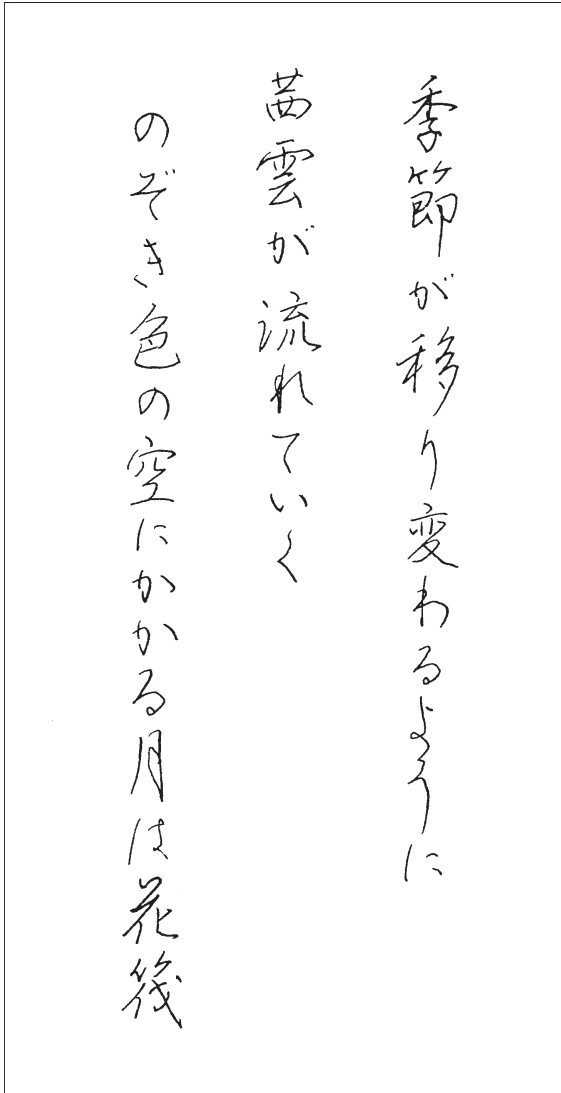 季節が移り変わるように
茜雲が流れていく
のぞき色の空にかかる月は花筏